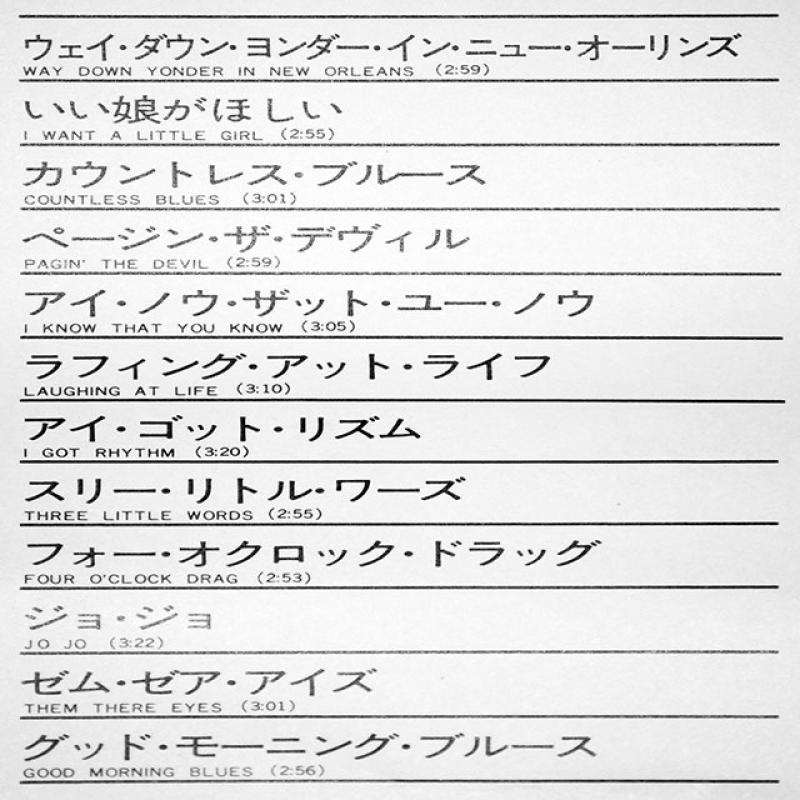 ウェイ・ダウン・ヨンダー・イン・ニュー・オーリンズ
WAY DOWN YONDER IN NEW ORLEANS (2:59)
いい娘がほしい
I WANT A LITTLE GIRL (2:55)
カウントレス・ブルース
COUNTLESS BLUES (3:01)
ページン・ザ・デヴィル
PAGIN' THE DEVIL (2:59)
アイ・ノウ・ザット・ユー・ノウ
I KNOW THAT YOU KNOW (3:05)
ラフィング・アット・ライフ
LAUGHING AT LIFE (3:10)
アイ・ゴット・リズム
I GOT RHYTHM (3:20)
スリー・リトル・ワーズ
THREE LITTLE WORDS (2:55)
フォー・オクロック・ドラッグ
FOUR O'CLOCK DRAG (2:53)
ジョ・ジョ
JO JO (3:22)
ゼム・ゼア・アイズ
THEM THERE EYES (3:01)
グッド・モーニング・ブルース
GOOD MORNING BLUES (2:56)